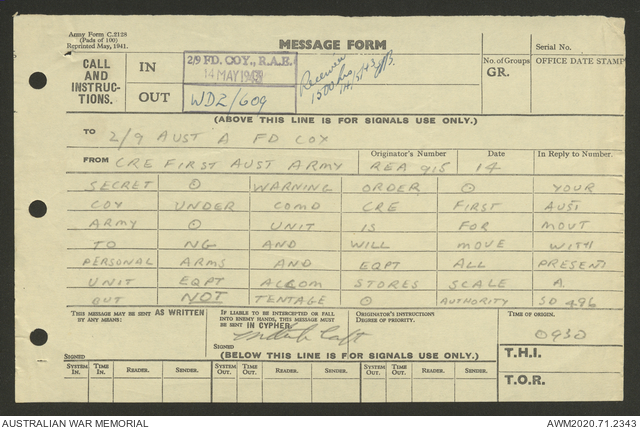 Army Form C.2128
(Pads of 100)
Reprinted May, 1941.
MESSAGE FORM
Serial No.
CALL AND INSTRUC-TIONS.
IN
2/9 FD. COY., R.A.E.
14 MAY 1943
Received 1500 hrs 14/5/43
No. of Groups
GR.
OFFICE DATE STAMP
OUT
WD2/609
(ABOVE THIS LINE IS FOR SIGNALS USE ONLY.)
TO 2/9 AUST A FD COY
FROM CRE FIRST AUST ARMY
Originator's Number
REA 915
Date
14
In Reply to Number.
SECRET ⊙ WARNING ORDER ⊙ YOUR
COY UNDER COMD CRE FIRST AUST
ARMY ⊙ UNIT IS FOR MOVT
TO NG AND WILL MOVE WITH
PERSONAL ARMS AND EQPT ALL PRESENT
UNIT EQPT ACCOM STORES SCALE A
BUT NOT TENTAGE ⊙ AUTHORITY SD 496
THIS MESSAGE MAY BE SENT AS WRITTEN
BY ANY MEANS:
IF LIABLE TO BE INTERCEPTED OR FALL
INTO ENEMY HANDS, THIS MESSAGE MUST
BE SENT IN CIPHER.
ORIGINATOR'S INSTRUCTIONS
DEGREE OF PRIORITY.
TIME OF ORIGIN.
0930
Capt
SIGNED
SIGNED
(BELOW THIS LINE IS FOR SIGNALS USE ONLY.)
T.H.I.
T.O.R.
SYSTEM IN. TIME IN. READER. SENDER. SYSTEM OUT. TIME OUT. READER. SENDER. SYSTEM OUT. TIME OUT. READER. SENDER.
AUSTRALIAN WAR MEMORIAL
AWM2020.71.2343